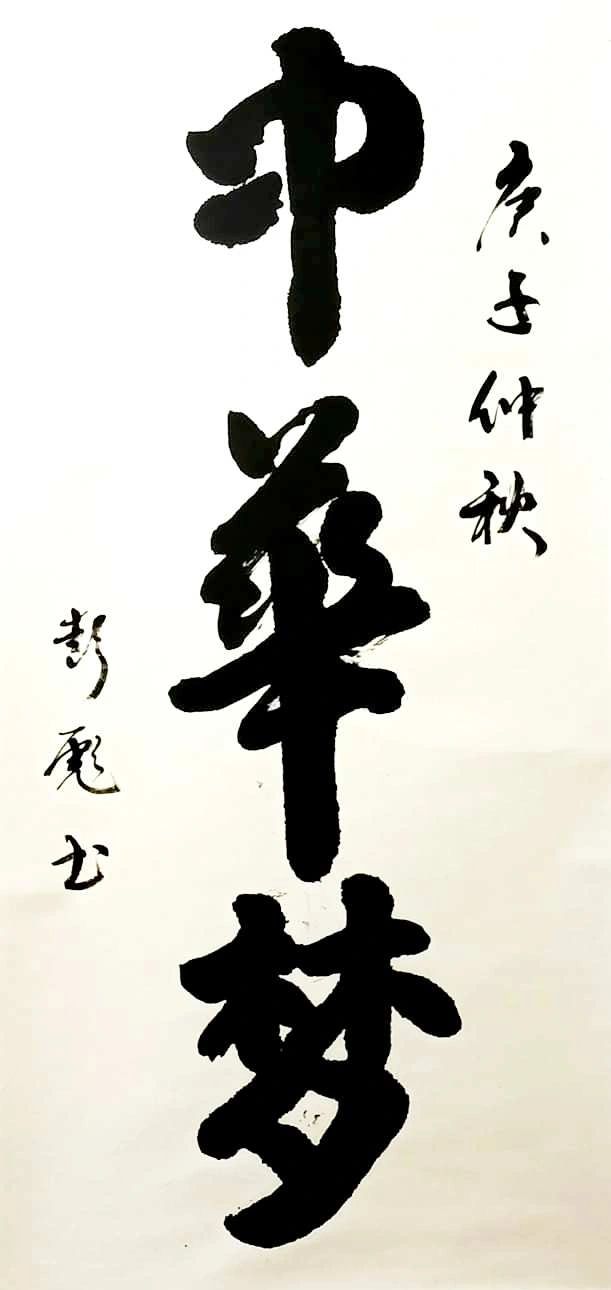 庚子仲秋
中華梦
彭彪书